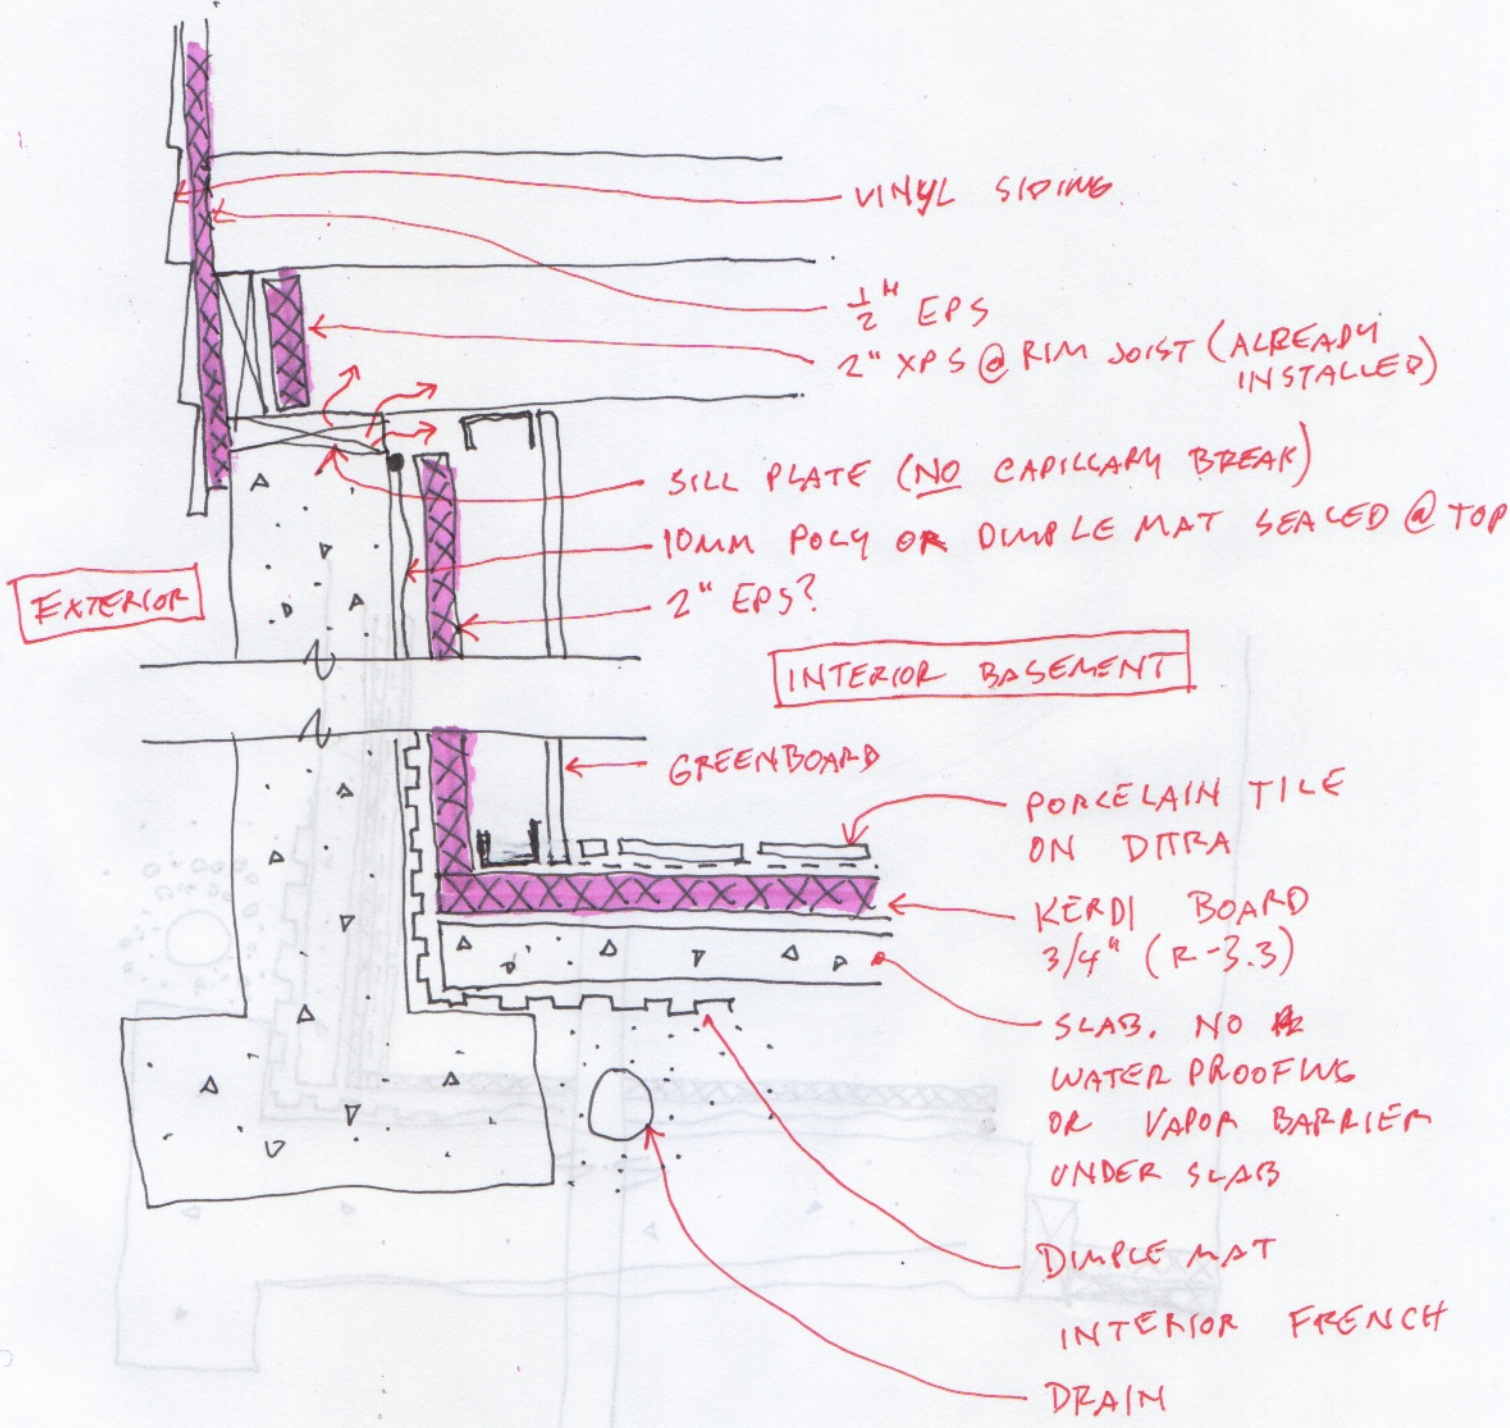 VINYL SIDING
1/2" EPS
2" XPS @ RIM JOIST (ALREADY
INSTALLED)
SILL PLATE (NO CAPILLARY BREAK)
10MM POLY OR DIMPLE MAT SEALED @ TOP
2" EPS?
EXTERIOR
INTERIOR BASEMENT
GREENBOARD
PORCELAIN TILE
ON DITRA
KERDI BOARD
3/4" (R-3.3)
SLAB. NO
WATER PROOFING
OR VAPOR BARRIER
UNDER SLAB
DIMPLE MAT
INTERIOR FRENCH
DRAIN